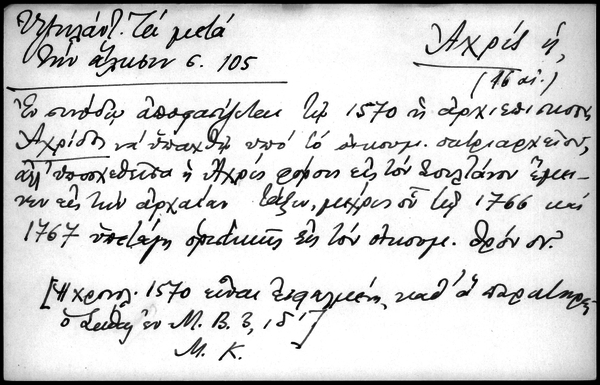 Ὑψηλάντ. Τὰ μετὰ
τὴν ἅλωσιν σ. 105
Ἀχρὶς ἡ,
(16 αἰ.)
Ἐν συνόδῳ ἀποφασίζεται τῷ 1570 ἡ ἀρχιεπισκοπὴ
Ἀχρίδος νὰ ὑπαχθῇ ὑπὸ τὸ οἰκουμ. πατριαρχεῖον,
ἀλλ' ὑποσχεθεῖσα ἡ Ἀχρὶς φόρον εἰς τὸν Σουλτάνον ἔμει-
νεν εἰς τὴν ἀρχαίαν τάξιν, μέχρις οὗ τῷ 1766 καὶ
1767 ὑπετάγη ὁριστικῶς εἰς τὸν οἰκουμ. θρόνον.
[Ἡ χρονολ. 1570 εἶναι ἐσφαλμένη, καθ' ἃ παρατηρεῖ
ὁ Σάθας ἐν Μ. Β. 3, ιδ']
Μ. Κ.